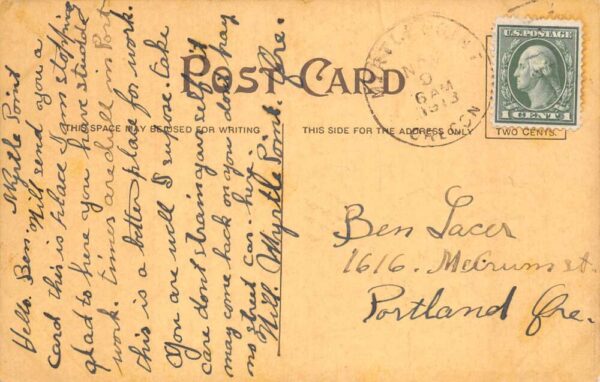 POST CARD
THIS SPACE MAY BE USED FOR WRITING
THIS SIDE FOR THE ADDRESS ONLY
U.S. POSTAGE
1 CENT 1
TWO CENTS.
MYRTLE POINT
NOV
6 AM
1913
OREGON
Myrtle Point
Hello Ben. Will send you a
card this is place I am stopping
glad to here you have studdi
work. times are dull in Port
this is a better place for work.
You are well I supose. take
care dont strain yourself it
may come back on you dont hay
no street car - hire.
Will. Myrtle Point. Ore.
Ben Lacer
1616.
Portland Ore.